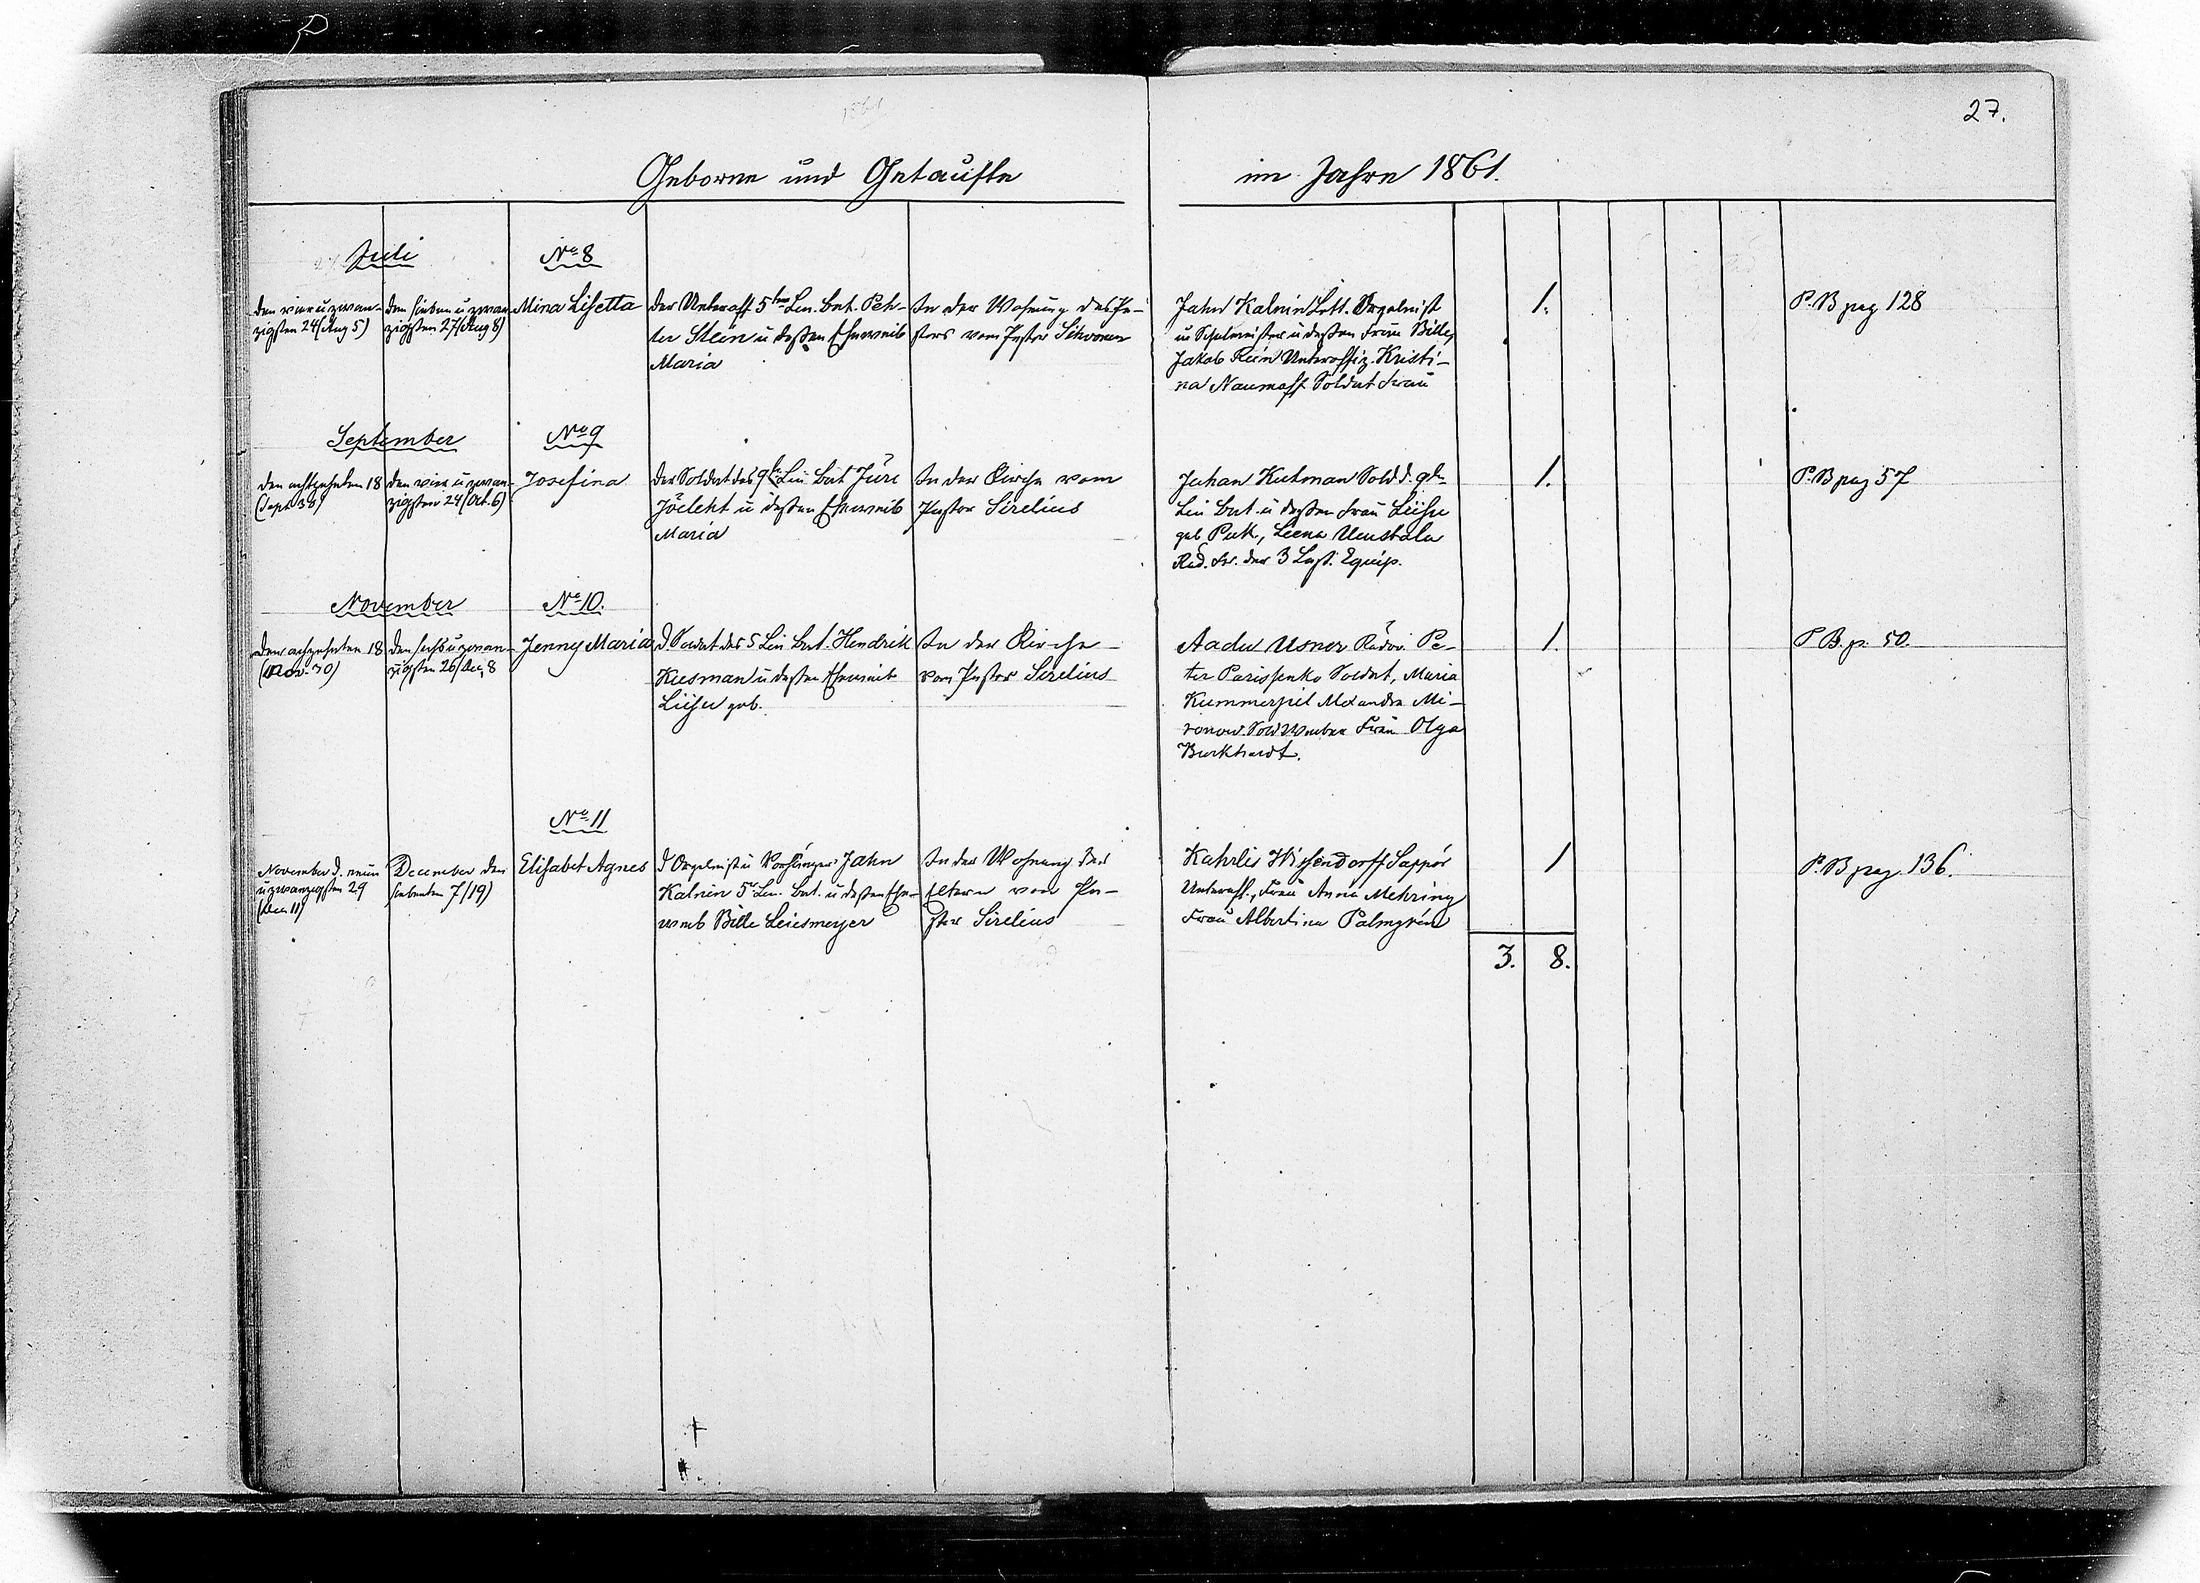 1861
27.
Geborne und Getaufte im Jahre 1861.
Juli No 8
den vier u zwan-
zigsten 24 (Aug 5)
den sieben u zwan-
zigsten 27 (Aug 8)
Mina Lisetta
Der Unteroff 5ten Lin. bat. Peh-
ter Stein u dessen Eheweib
Maria
In der Wohnung des Pa-
stors vom Pastor
Jahn Kalnin Lett. Orgelnist
u Schulmeister u dessen Frau Bille,
Jakob Rein Unteroffiz. Kristi-
na Naumoff Soldat Frau
1.
P. B pag 128
September No 9
den achtzehnten 18
(Sept 30)
den vier u zwan-
zigsten 24 (Oct. 6)
Josefina
Der Soldat des 9t Lin bat Jüri
Jöeleht u dessen Eheweib
Maria
In der Kirche vom
Pastor Sirelius
Juhan Kutman Sold d. 9t
Lin bat. u dessen Frau Liisu
geb Puk, Leena Uustalu
Fr. der 3 Last. Equip.
1.
P. B pag 57
November No 10.
den achzehnten 18
(Nov. 30)
den sechs u zwan-
zigsten 26/Dec. 8
Jenny Maria
d Soldat des 5 Lin bat. Hendrik
Kusman u dessen Eheweib
Liisu geb.
In der Kirche
vom Pastor Sirelius
Aadu Usner Pe-
ter Parissenko Soldat, Maria
Kummerpil Alexandra Mi-
ronow Frau Olga
Burkhardt.
1.
P. B. p. 50.
No 11
November d. neun
u zwanzigsten 29
(Dec 11)
December den
siebenten 7/19)
Elisabet Agnes
d Orgelnist u Vorsänger Jahn
Kalnin 5 Lin. bat. u dessen Ehe-
weib Bille Leiesmeyer
In der Wohnung der
Eltern vom Pa-
stor Sirelius
Kahrlis Wissendorff Sappör
Unteroff., Frau Anna Mehring
Frau Albertina Palmgrén
1
P. B pag. 136.
3. 8.